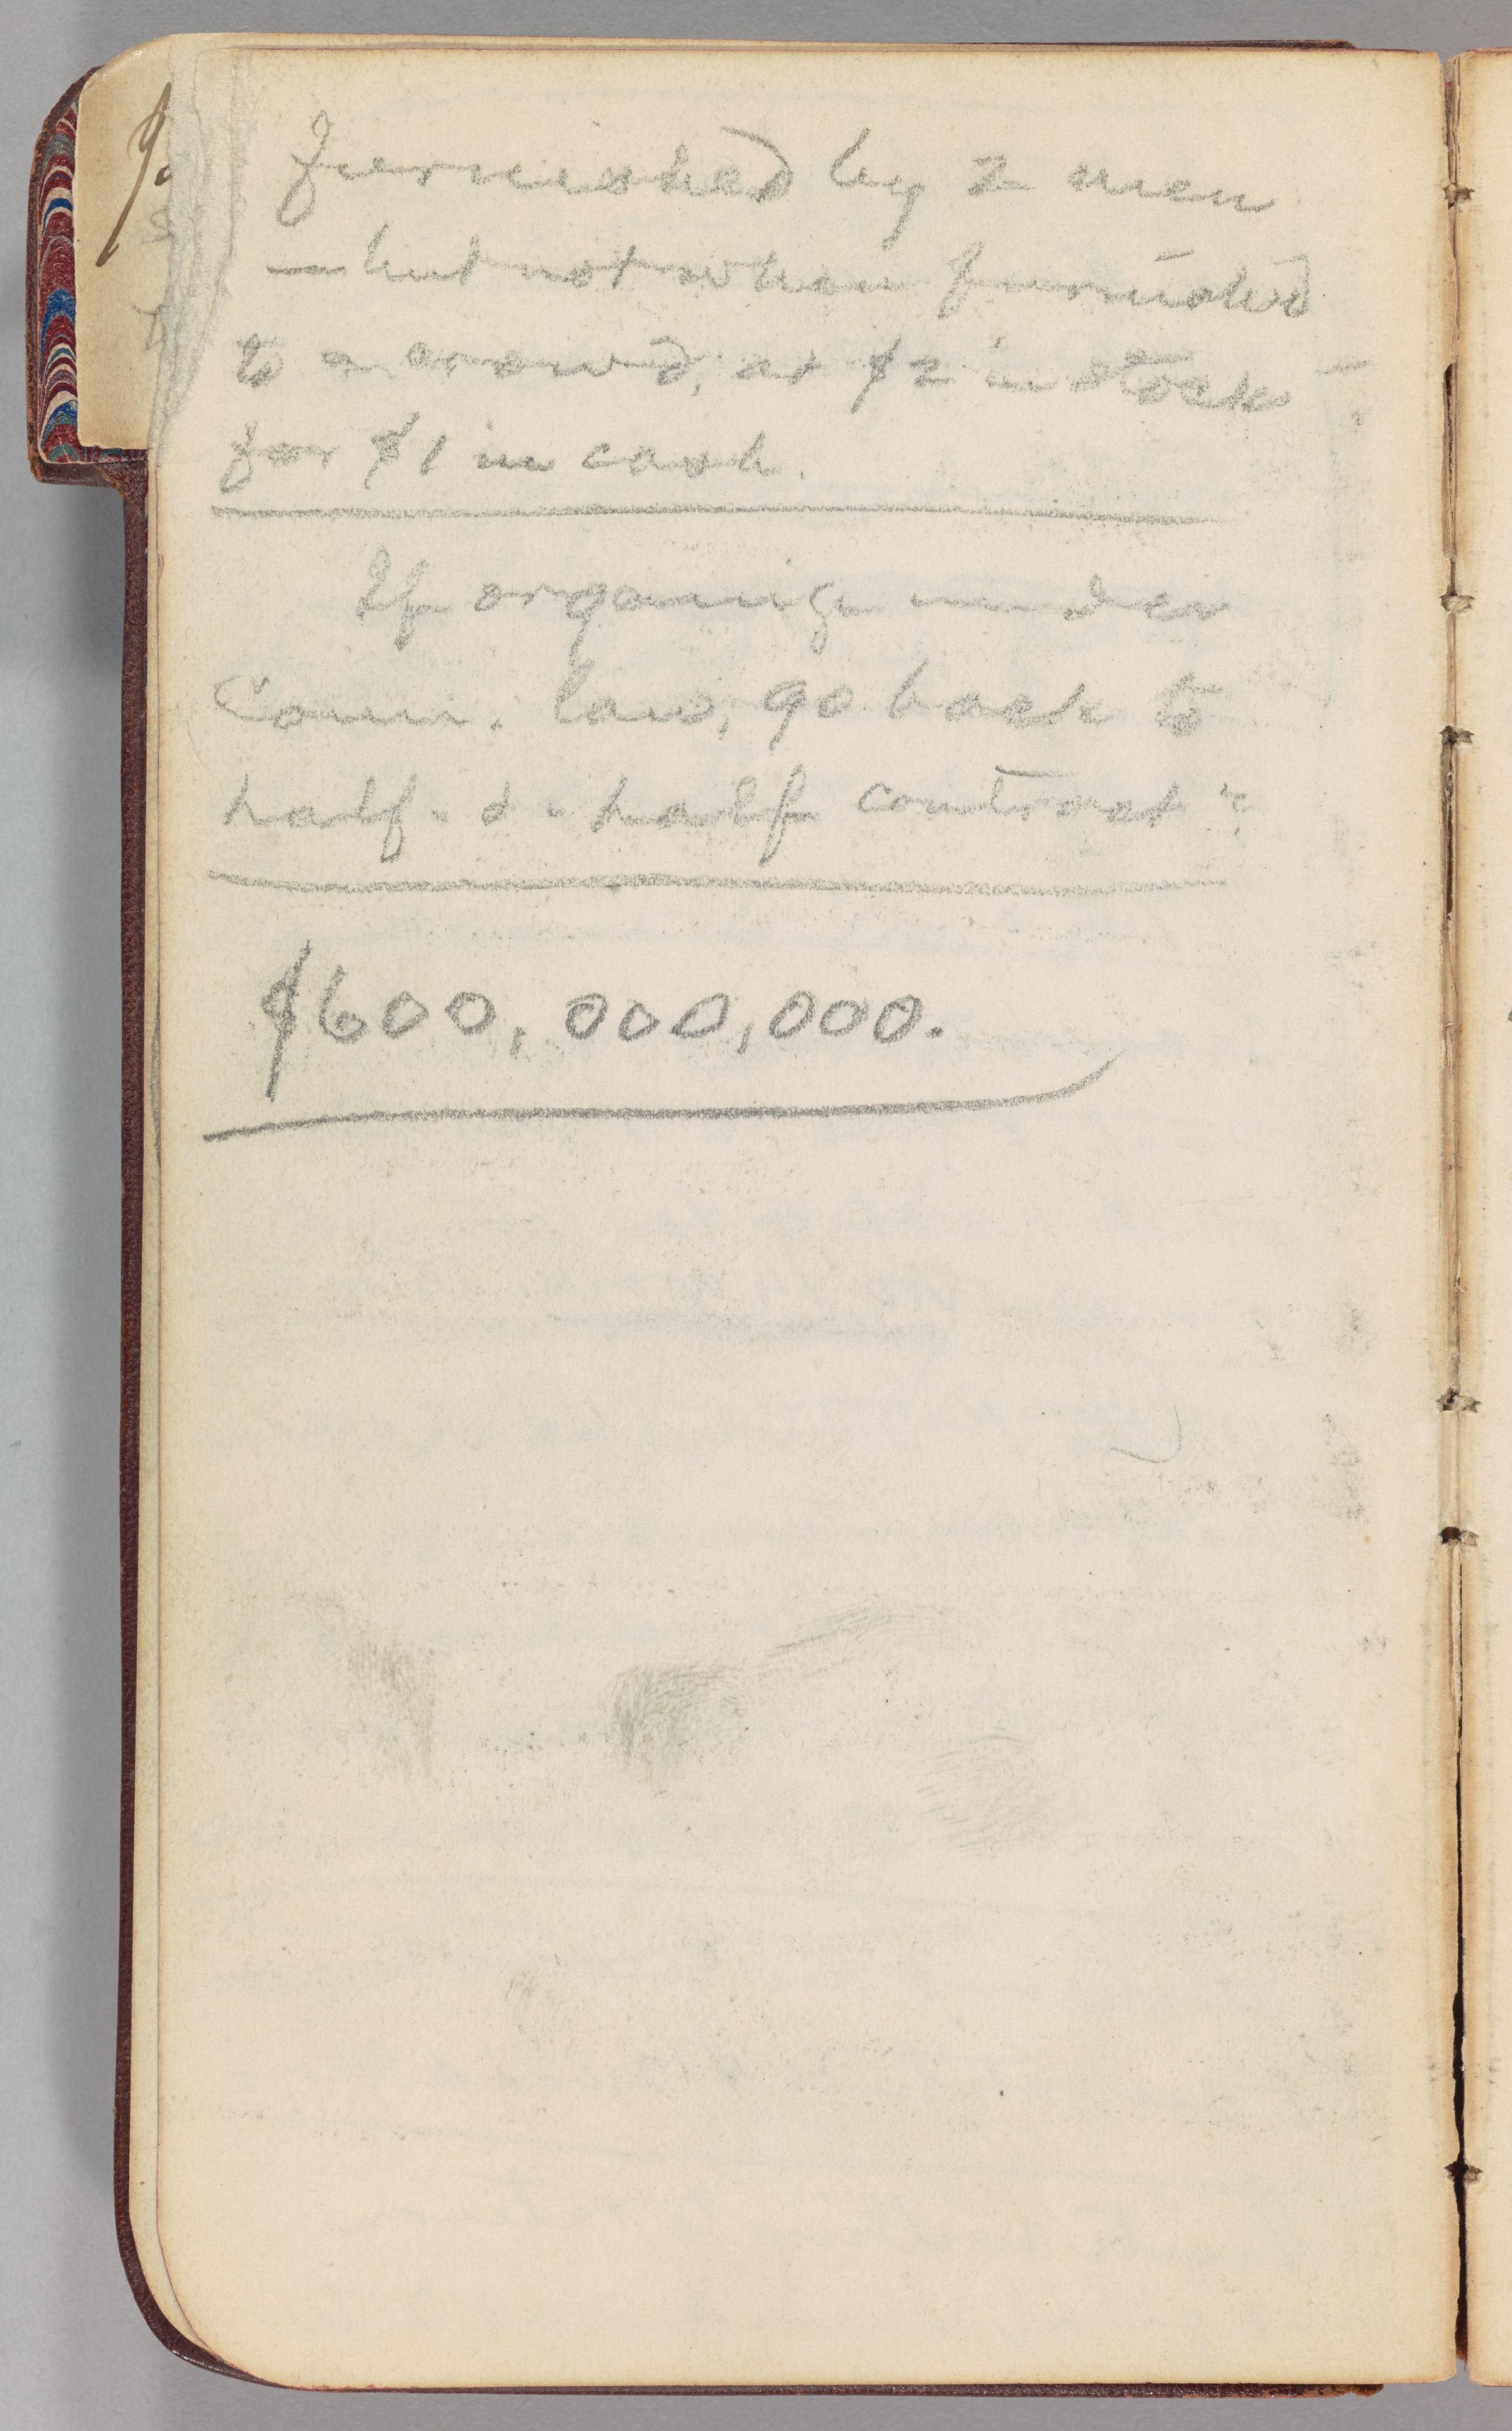 furnished by 2 men
—but not when furnished
to a crowd, at $2 in stock
for $1 in cash.
If organize under
Conn. law, go back to
half-&-half contract?
$600,000,000.